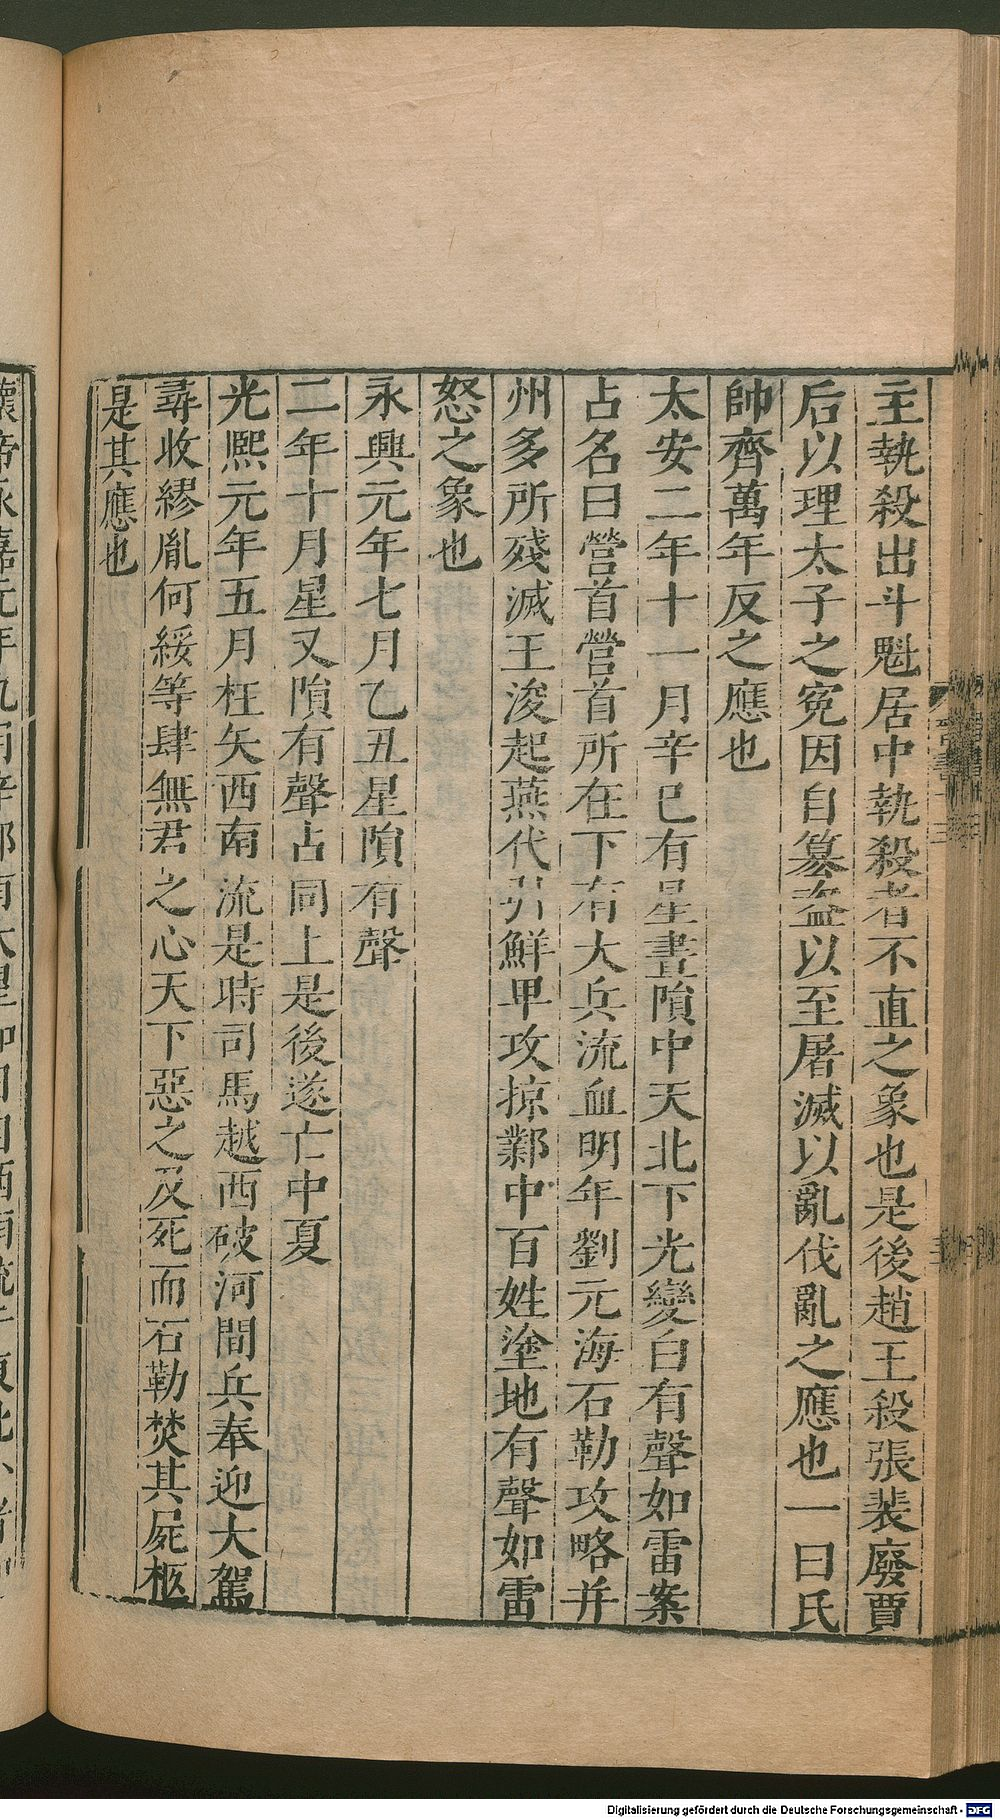 主執殺出斗魁居中執殺者不直之象也是後趙王殺張裴廢賈
后以理太子之冤因自篡盗以至屠滅以亂伐亂之應也一曰氐
帥齊萬年反之應也
太安二年十一月辛巳有星晝隕中天北下光變白有聲如雷案
占名曰營首營首所在下有大兵流血明年劉元海石勒攻略并
州多所殘滅王浚起燕代引鮮卑攻掠鄴中百姓塗地有聲如雷
怒之象也
永興元年七月乙丑星隕有聲
二年十月星又隕有聲占同上是後遂亡中夏
光熙元年五月枉矢西南流是時司馬越西破河間兵奉迎大駕
尋收繆胤何綏等肆無君之心天下惡之及死而石勒焚其屍柩
是其應也
懷帝永嘉元年九月辛卯有大星如日自西南流于東北小者
Digitalisierung gefördert durch die Deutsche Forschungsgemeinschaft - DFG